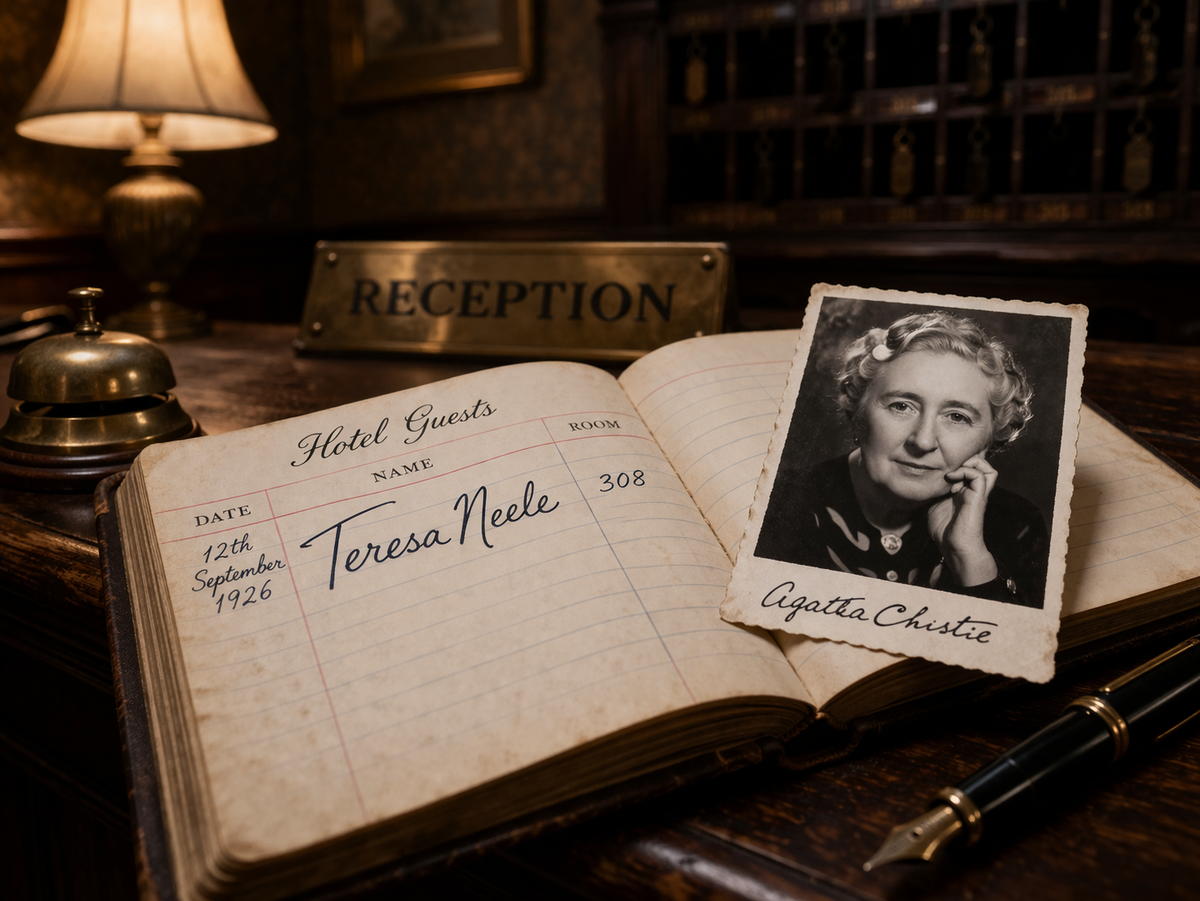 RECEPTION
Hotel Guests
DATE NAME ROOM
12th September 1926 Teresa Neele 308
Agatha Chistie